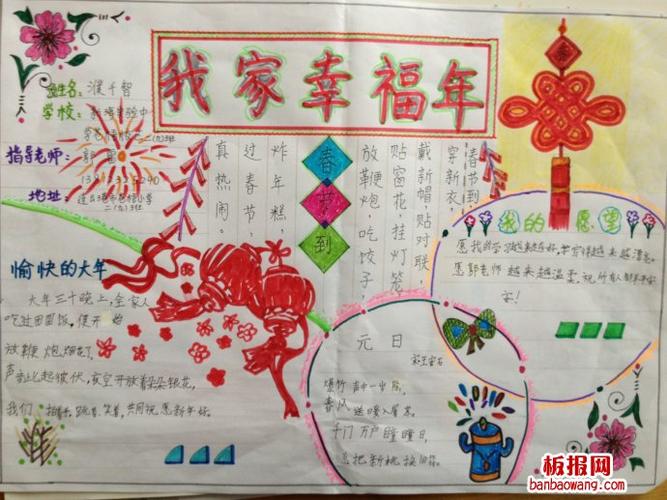 我家幸福年
姓名：濮千智
学校：
指导老师：
地址：
春节到
春节到，
穿新衣，
戴新帽，贴对联，
贴窗花，挂灯笼，
放鞭炮，吃饺子，
炸年糕，
过春节，
真热闹。
我的愿望
愿我的学习越来越好，字写得越来越漂亮。
愿郭老师越来越温柔，祝所有人都幸福
愉快的大年
大年三十晚上，全家人
吃过团圆饭，便开始
放鞭炮，烟花了，
声音比起彼伏，夜空开放着朵朵银花，
我们、拍着手、跳着、笑着，共同祝愿新年好。
元日
宋王安石
爆竹声中一岁除，
春风送暖入屠苏。
千门万户瞳瞳日，
总把新桃换旧符。
板报网
banbaowang.com